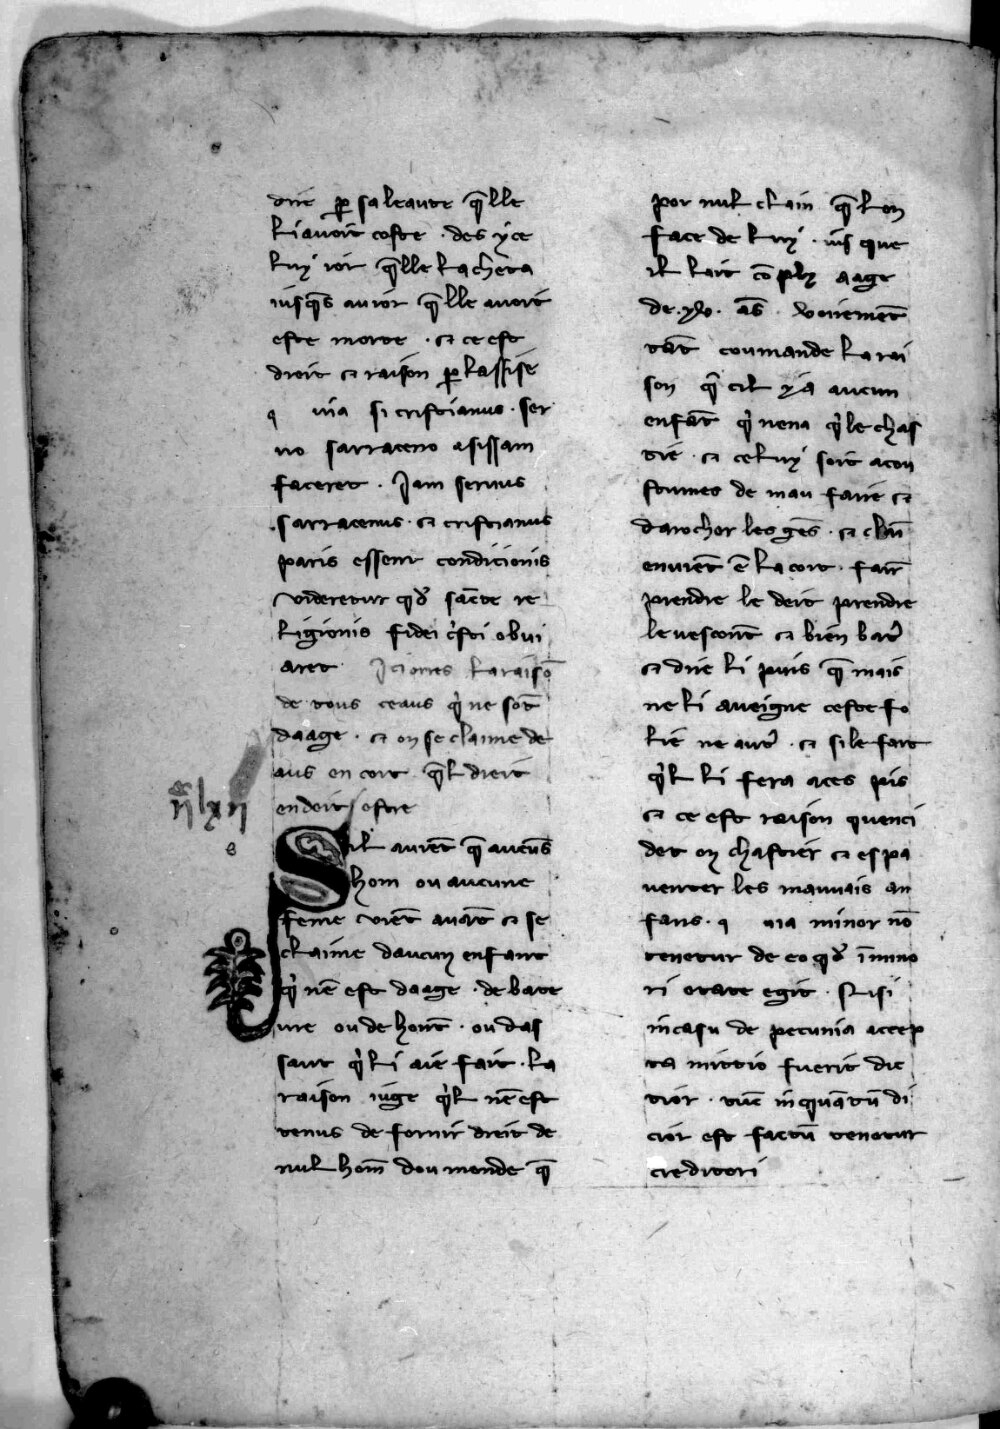 dire ꝑ sa leaute q̃lle
li avoit coste · des yce
luy ior q̃lle lacheta
iusq̃s au ior q̃lle avoit
este morte · ⁊ ce est
droit ⁊ raison ꝑ lassise
q uia si cristianus · ser
uo sarraceno asissam
faceret · Jam seruus
sarracenus · ⁊ cristianus
paris essent condicionis
videretur qđ sancte re
ligionis fidei c̾sti obui
aret Ici orres la raisõ
de tous ceaus q̾ ne sõt
daage · ⁊ on se claime de
aus en cort q̃l dreit
en doit estre
Sil avient q̃ aucũs
hom ou aucune
feme vient avãt ⁊ se
claime daucun enfant
q̾ nẽ est daage · de bate
ure ou de hont · ou das
saut q̾ li aie fait · la
raison iuge q̾l nẽ est
tenus de fornir dreit de
nul hom̃ dou monde q̃
por nul claim q̃ lon
face de luy · ius que
il lait cõply aage
de · xv · ãs · voirement
tãt coumande la rai
son q̃ cil y a aucun
enfãt q̾ nen a q̾ le chas
tie · ⁊ celuy soit acou
stumes de mau faire ⁊
darocher les gẽs · ⁊ claĩ
envient ẽ la cort · fair
prendre le deit prendre
le vescont ⁊ bien batr̃
⁊ dire li puis q̃ mais
ne li aveigne ceste fo
lie ne autr̃ · ⁊ si le fait
q̾l li fera aces pis
⁊ ce est raison quenci
det on chastier ⁊ espa
venter les mauvais an
fans · q uia minor nõ
tenetur de eo qđ ĩ mino
ri etate egit · Nisi
in casu de pecunia accep
ta mittio fuerit dic
tior · tũc in quãtũ di
cior est factũ tenetur
creditori